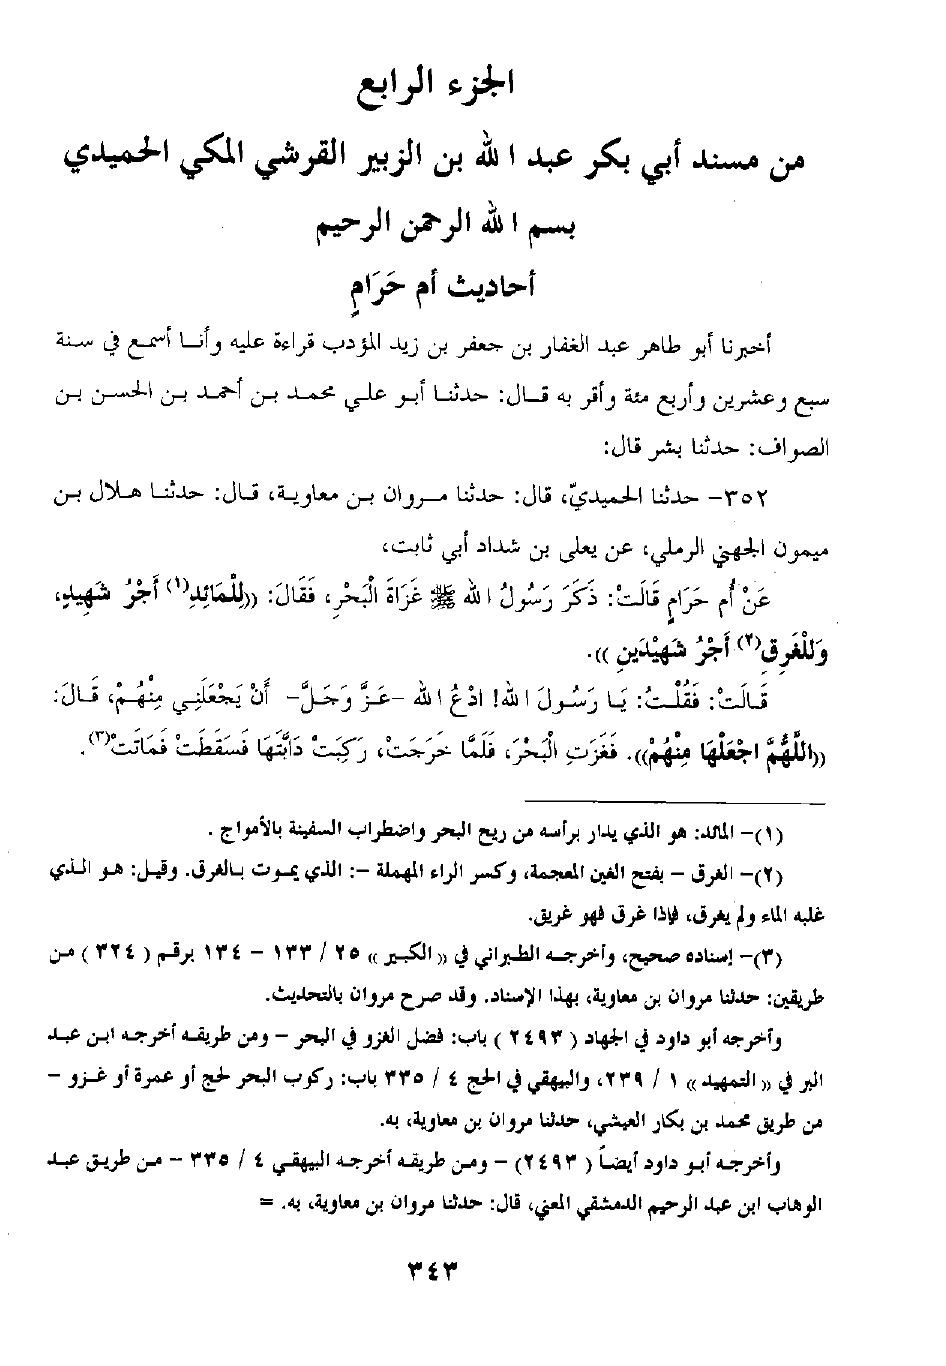 الجزء الرابع
من مسند أبي بكر عبد الله بن الزبير القرشي المكي الحميدي
بسم الله الرحمن الرحيم
أحاديث أم حَرَامٍ
أخبرنا أبو طاهر عبد الغفار بن جعفر بن زيد المؤدب قراءة عليه وأنا أسمع في سنة
سبع وعشرين وأربع مئة وأقر به قال: حدثنا أبو علي محمد بن أحمد بن الحسن بن
الصواف: حدثنا بشر قال:
٣٥٢- حدثنا الحميديّ، قال: حدثنا مروان بن معاوية، قال: حدثنا هلال بن
ميمون الجهني الرملي، عن يعلى بن شداد أبي ثابت،
عَنْ أم حَرَامٍ قَالَتْ: ذَكَرَ رَسُولُ الله ﷺ غَزَاةَ الْبَحْرِ، فَقَالَ: ((لِلْمَائِدِ(١) أَجْرُ شَهِيدٍ،
وَلِلْغَرِقِ(٢) أَجْرُ شَهِيْدَيْنِ )).
قَالَتْ: فَقُلْتُ: يَا رَسُولَ الله! ادْعُ الله -عَزَّ وَجَلَّ- أَنْ يَجْعَلَنِي مِنْهُمْ، قَالَ:
((اللَّهُمَّ اجْعَلْهَا مِنْهُمْ)). فَغَزَتِ الْبَحْرَ، فَلَمَّا خَرَجَتْ، رَكِبَتْ دَابَّتَهَا فَسَقَطَتْ فَمَاتَتْ(٣).
(١)- المائد: هو الذي يدار برأسه من ريح البحر واضطراب السفينة بالأمواج .
(٢)- الغرق - بفتح الغين المعجمة، وكسر الراء المهملة -: الذي يموت بالغرق. وقيل: هو الذي
غلبه الماء ولم يغرق، فإذا غرق فهو غريق.
(٣)- إسناده صحيح، وأخرجه الطبراني في « الكبير » ٢٥ / ١٣٣ - ١٣٤ برقم ( ٣٢٤ ) من
طريقين: حدثنا مروان بن معاوية، بهذا الإسناد. وقد صرح مروان بالتحديث.
وأخرجه أبو داود في الجهاد ( ٢٤٩٣ ) باب: فضل الغزو في البحر - ومن طريقه أخرجه ابن عبد
البر في « التمهيد » ١ / ٢٣٩، والبيهقي في الحج ٤ / ٣٣٥ باب: ركوب البحر لحج أو عمرة أو غزو -
من طريق محمد بن بكار العيشي، حدثنا مروان بن معاوية، به.
وأخرجه أبو داود أيضاً ( ٢٤٩٣) - ومن طريقه أخرجه البيهقي ٤ / ٣٣٥ - من طريق عبد
الوهاب ابن عبد الرحيم الدمشقي المعني، قال: حدثنا مروان بن معاوية، به. =
٣٤٣